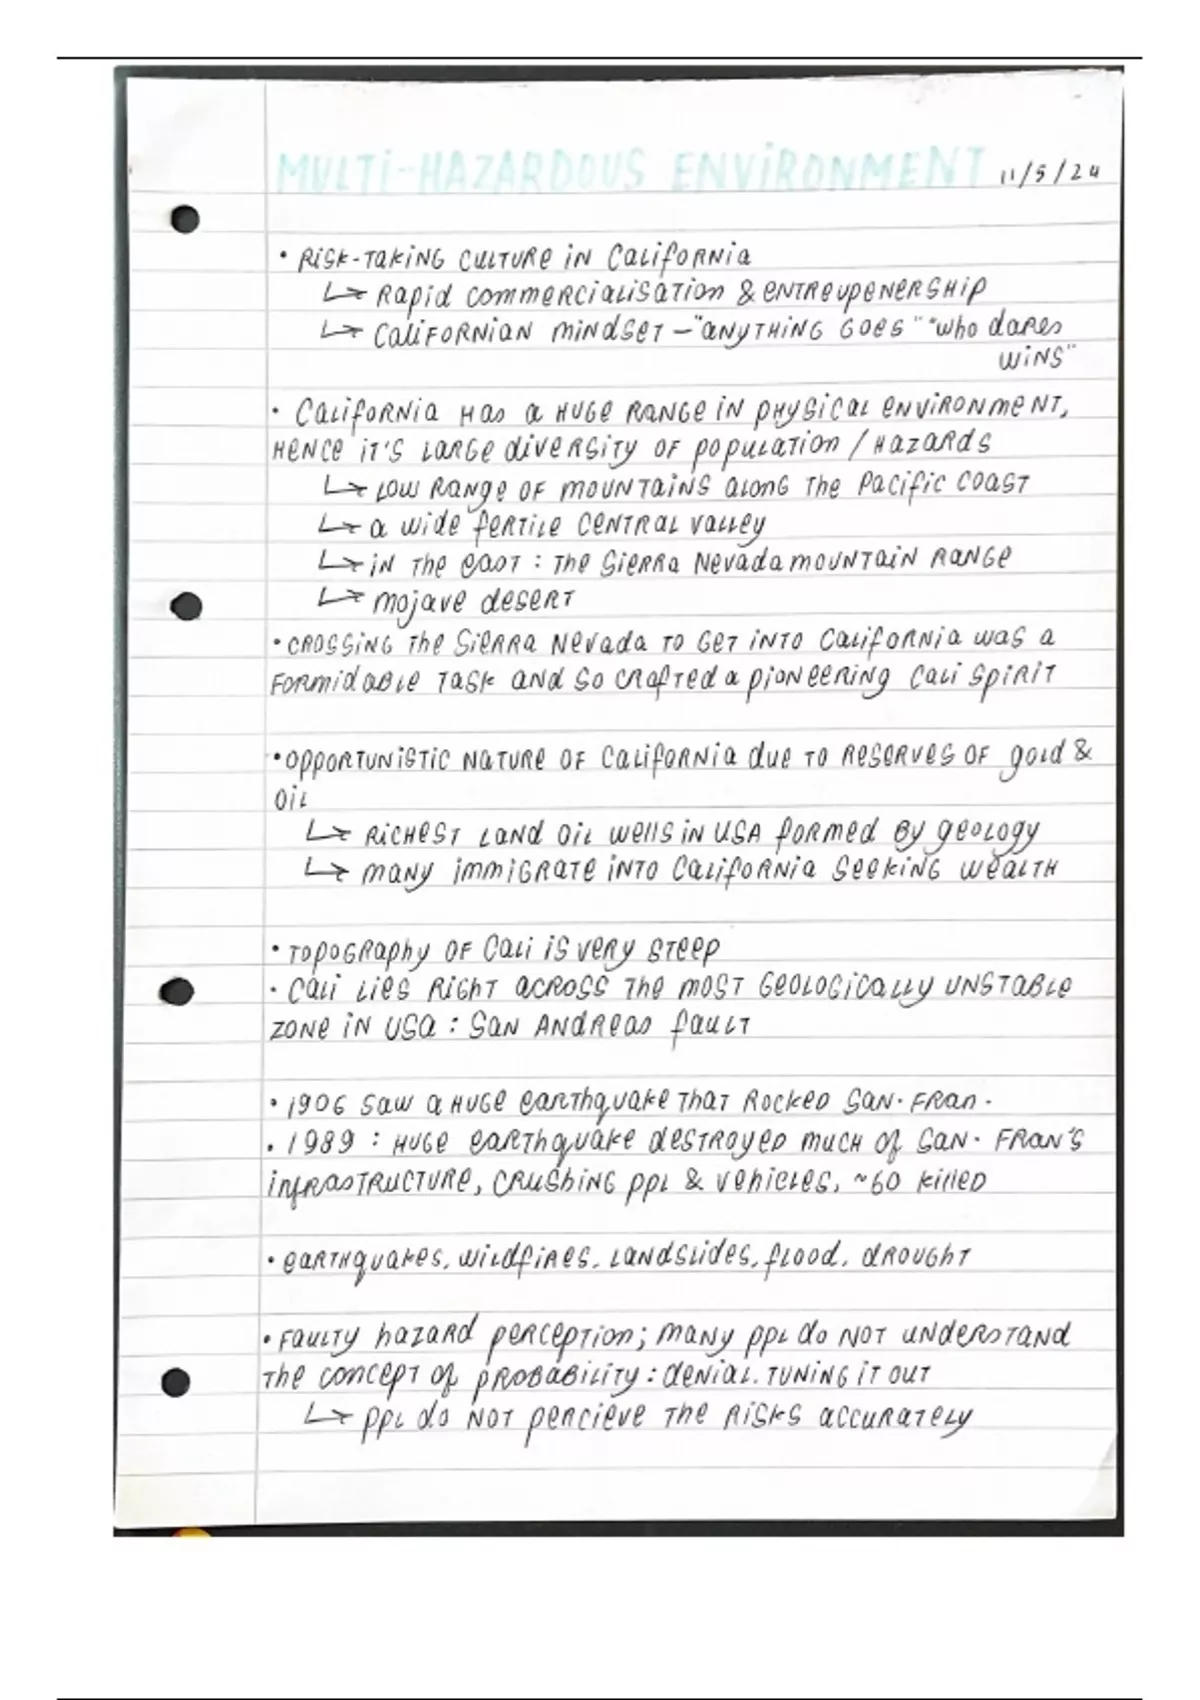 MULTI-HAZARDOUS ENVIRONMENT 11/5/24
• Risk-taking culture in California
↳ Rapid commercialisation & entreupenership
↳ Californian mindset – "anything goes" "who dares
wins"
• California has a huge range in physical environment,
hence it's large diversity of population / hazards
↳ low range of mountains along the Pacific coast
↳ a wide fertile central valley
↳ in the east : the Sierra Nevada mountain range
↳ mojave desert
• crossing the Sierra Nevada to get into California was a
formidable task and so crafted a pioneering Cali spirit
• opportunistic nature of California due to reserves of gold &
oil
↳ Richest land oil wells in USA formed by geology
↳ many immigrate into California seeking wealth
• Topography of Cali is very steep
• Cali lies right across the most geologically unstable
zone in USA : San Andreas fault
• 1906 saw a huge earthquake that rocked San. Fran.
• 1989 : huge earthquake destroyed much of San. Fran's
infrastructure, crushing ppl & vehicles, ~60 killed
• earthquakes, wildfires, landslides, flood, drought
• Faulty hazard perception; many ppl do not understand
the concept of probability : denial. tuning it out
↳ ppl do not percieve the risks accurately